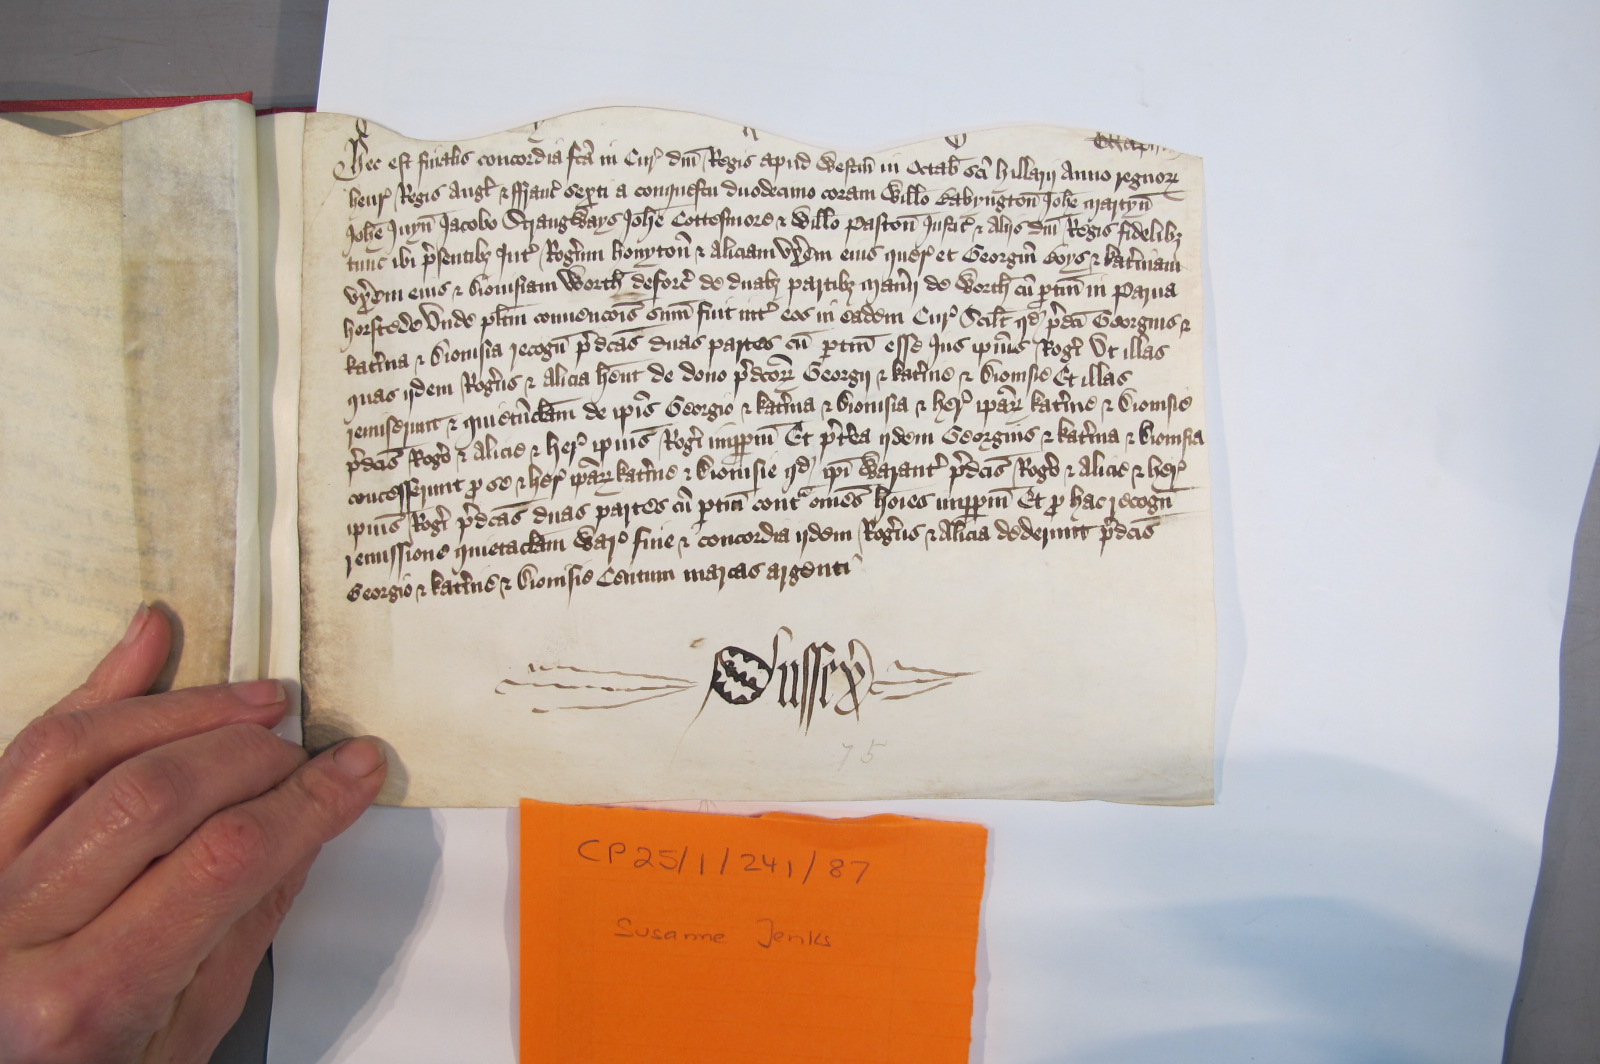 Hec est finalis concordia fcā in Cur' dnī Regis apud Westm̄ in Octab' scī Hillarij Anno regnor'
henr' Regis Angl' & ffranc' sexti a conquestu duodecimo coram Willo Babyngton̄ Johe Martyn̄
Johe Juyn̄ Jacobo Strangways Johe Cottesmore & Willo Paston̄ Justic' & alijs dnī Regis fidelib3
tunc ibi p̄sentib3 Int' Rogm̄ honyton̄ & Aliciam Vx̄em eius quer' et Georgiū Boys & kat̄inam
vx̄em eius & Dionisiam Worth̄ deforc' de duab3 partib3 man̄ij de Worth̄ cū ptin̄ in Parua
horstede Vnde pl̄itm conuenc̄ois sum̄ fuit int' eos in eadem Cur' Scil̄t qd' p̄dc̄i Georgius &
kat̄ina & Dionisia recogn̄ p̄dc̄as duas partes cū ptin̄ esse Jus ip̄ius Roḡi Vt illas
quas ijdem Roḡus & Alicia hent de dono p̄dc̄or' Georgij & kat̄ine & Dionisie Et illas
remiserunt & quietūclam̄ de ip̄is Georgio & kat̄ina & Dionisia & her' ip̄ar' kat̄ine & Dionisie
p̄dc̄is Roḡo & Alicie & her' ip̄ius Roḡi imp̄pm̄ Et p̄t̄ea ijdem Georgius & kat̄ina & Dionisia
concesserunt p se & her' ip̄ar' kat̄ine & Dionisie qd' ip̄i Warant' p̄dc̄is Roḡo & Alicie & her'
ip̄ius Roḡi p̄dc̄as duas partes cū ptin̄ cont̄ om̄es hōies imp̄pm̄ Et p hac recogn̄
remissione quietaclam̄ War' fine & concordia ijdem Roḡus & Alicia dederunt p̄dc̄is
Georgio & kat̄ine & Dionisie Centum marcas argenti
Sussex̄
75
CP25/1/241/87
Susanne Jenks